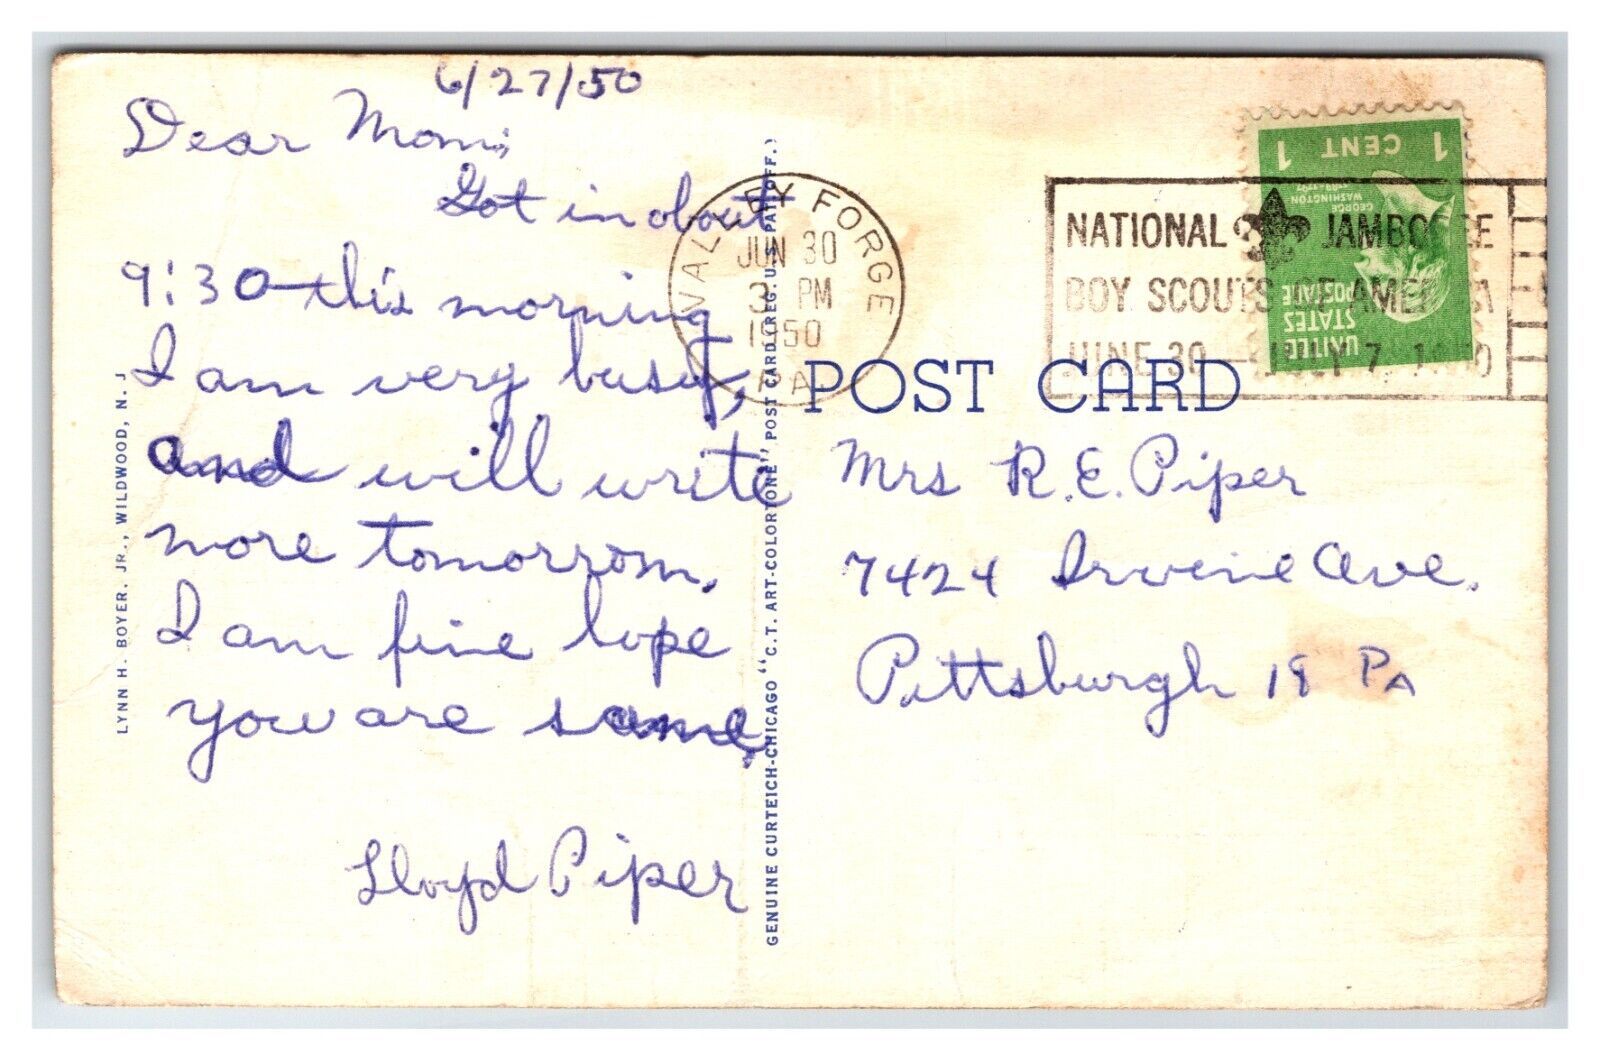 6/27/50
Dear Mom;
Got in about
9:30 this morning
I am very busy,
and will write
more tomorrom.
I am fine hope
you are same.
Lloyd Piper
LYNN H. BOYER, JR., WILDWOOD, N. J
GENUINE CURTEICH-CHICAGO "C.T. ART-COLORTONE" POST CARD (REG. U.S. PAT. OFF.)
VALLEY FORGE
JUN 30
3 PM
1950
PA
NATIONAL JAMBOREE
BOY SCOUTS OF AMERICA
JUNE 30 - JULY 7, 1950
1 CENT 1
GEORGE
WASHINGTON
1789-1797
UNITED
STATES
POSTAGE
POST CARD
Mrs R.E. Piper
7424 Irvine Ave.
Pittsburgh 18 PA